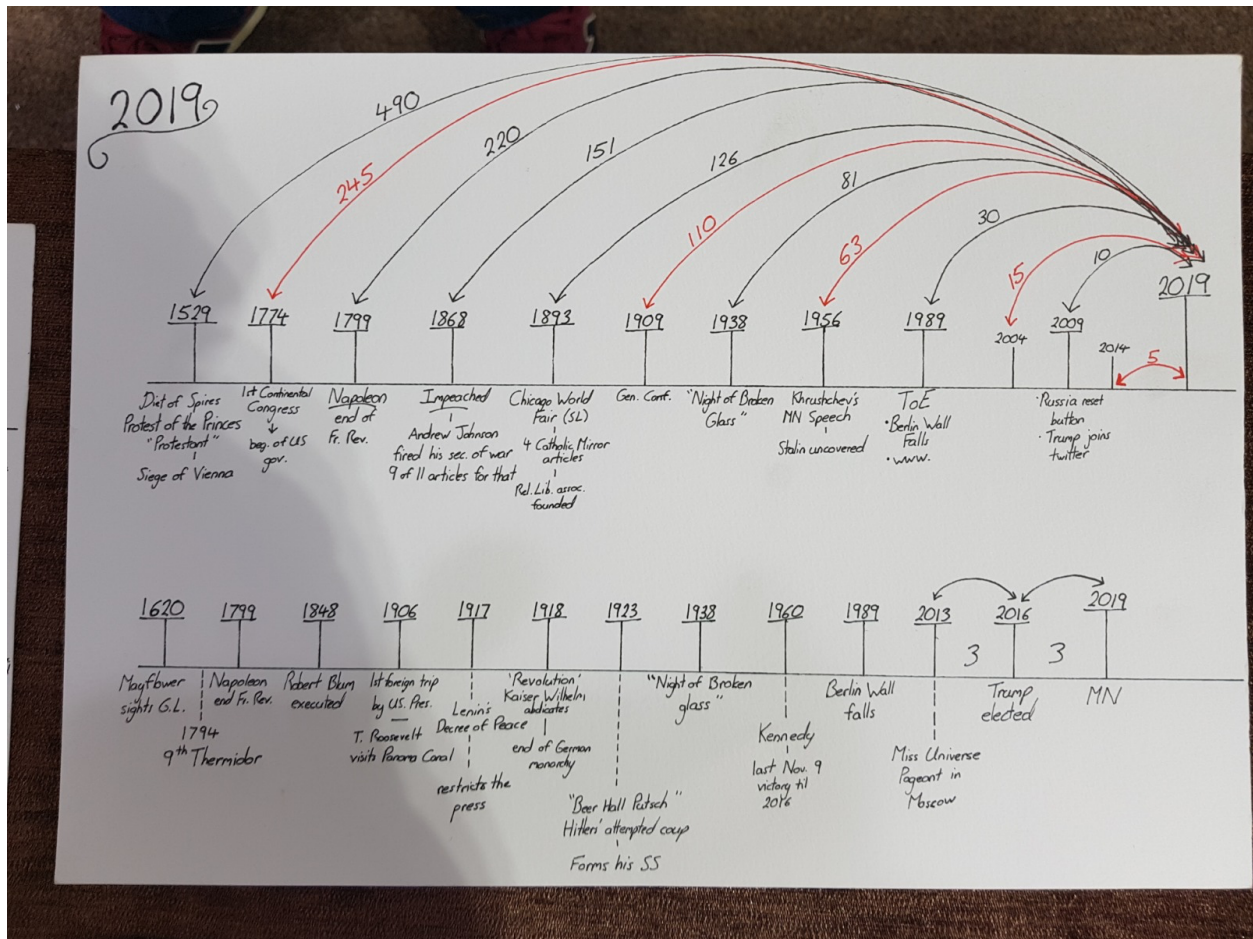 2019
490
245
220
151
126
110
81
63
30
15
10
5
1529
1774
1799
1868
1893
1909
1938
1956
1989
2004
2009
2014
2019
Diet of Spires
Protest of the Princes
"Protestant"
Siege of Vienna
1st Continental
Congress
beg. of US
gov.
Napoleon
end of
Fr. Rev.
Impeached
Andrew Johnson
fired his sec. of war
9 of 11 articles for that
Chicago World
Fair (SL)
4 Catholic Mirror
articles
Rel. Lib. assoc.
founded
Gen. Conf.
"Night of Broken
Glass"
Khrustchev's
MN Speech
Stalin uncovered
ToE
· Berlin Wall
Falls
· www.
· Russia reset
button
· Trump joins
twitter
1620
1799
1848
1906
1917
1918
1923
1938
1960
1989
2013
2016
2019
3
3
Mayflower
sights G.L.
1794
9th Thermidor
Napoleon
end Fr. Rev.
Robert Blum
executed
1st foreign trip
by US. Pres.
T. Roosevelt
visits Panama Canal
Lenin's
Decree of Peace
restricts the
press
'Revolution'
Kaiser Wilhelm
abdicates
end of German
monarchy
"Beer Hall Putsch"
Hitlers' attempted coup
Forms his SS
"Night of Broken
glass"
Kennedy
last Nov. 9
victory til
2016
Berlin Wall
falls
Miss Universe
Pageant in
Moscow
Trump
elected
MN